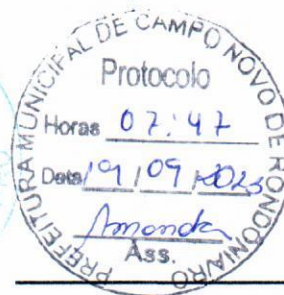 PREFEITURA MUNICIPAL DE CAMPO NOVO DE RONDONIA/RO
Protocolo
Horas 07:47
Data 19/09/2023
Amanda
Ass.